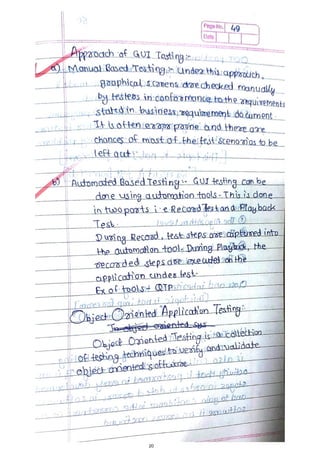 Page No. 49
Date
Approach of GUI Testing:-
a) Manual Based Testing:- Under this approach,
graphical screens are checked manually
by testers in conformance to the requirements
stated in business requirement document
It is often error prone and there are
chances of most of the test scenarios to be
left out
b) Automated Based Testing:- GUI testing can be
done using automation tools. This is done
in two parts i.e Record Test and Playback
Test.
During Record, test steps are captured into
the automation tool. During Playback, the
recorded steps are executed on the
application under test.
Ex of tools:- QTP.
Object Oriented Application Testing:-
Object Oriented Testing is a collection
of testing techniques to verify and validate
object oriented software.
20